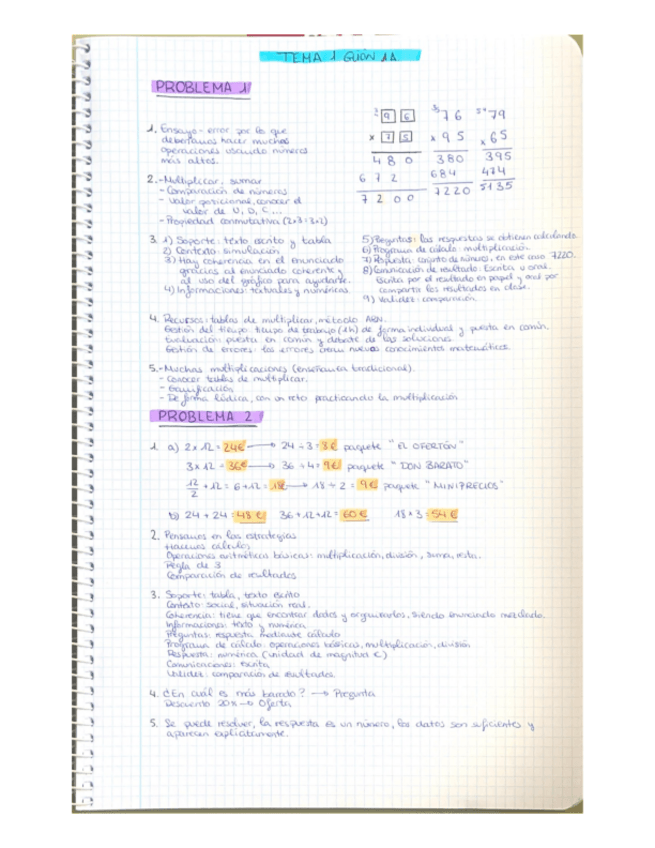 TEMA 1 GUIÓN 1A
PROBLEMA 1
1. Ensayo-error por lo que
deberíamos hacer muchas
operaciones usando números
más altos.
2.-Multiplicar, sumar
- Comparación de números
- Valor posicional, conocer el
valor de U, D, C...
- Propiedad conmutativa (2x3=3x2)
96
x 75
480
672
7200
76
x 95
380
684
7220
79
x 65
395
474
5135
3. 1) Soporte: texto escrito y tabla
2) Contexto: simulación
3) Hay coherencia en el enunciado
gracias al enunciado coherente y
al uso del gráfico para ayudarte.
4) Informaciones: textuales y numéricas
5) Preguntas: las respuestas se obtienen calculando.
6) Programa de cálculo: multiplicación.
7) Respuesta: conjunto de números, en este caso 7220.
8) Comunicación de resultado: Escrita u oral.
Escrita por el resultado en papel y oral por
compartir los resultados en clase.
9) Validez: comparación.
4. Recursos: tablas de multiplicar, método ABN.
Gestión del tiempo: tiempo de trabajo (1h) de forma individual y puesta en común.
Evaluación: puesta en común y debate de las soluciones
Gestión de errores: los errores crean nuevos conocimientos matemáticos.
5.-Muchas multiplicaciones (enseñanza tradicional).
- Conocer tablas de multiplicar.
- Gamificación
- De forma lúdica, con un reto practicando la multiplicación
PROBLEMA 2
1. a) 2x12=24€ → 24÷3=8€ paquete "EL OFERTÓN"
3x12=36€ → 36÷4=9€ paquete "DON BARATO"
12/2+12=6+12=18€ → 18÷2=9€ paquete "MINIPRECIOS"
b) 24+24=48€ 36+12+12=60€ 18x3=54€
2. Pensamos en las estrategias
Hacemos cálculos
Operaciones aritméticas básicas: multiplicación, división, suma, resta.
Regla de 3
Comparación de resultados
3. Soporte: tabla, texto escrito
Contexto: social, situación real.
Coherencia: tiene que encontrar datos y organizarlos, siendo enunciado mezclado.
Informaciones: texto y numérica
Preguntas: respuesta mediante cálculo
Programa de cálculo: operaciones básicas, multiplicación, división
Respuesta: numérica (unidad de magnitud €)
Comunicaciones: escrita
Validez: comparación de resultados.
4. ¿En cuál es más barato? → Pregunta
Descuento 20% → Oferta
5. Se puede resolver, la respuesta es un número, los datos son suficientes y
aparecen explícitamente.